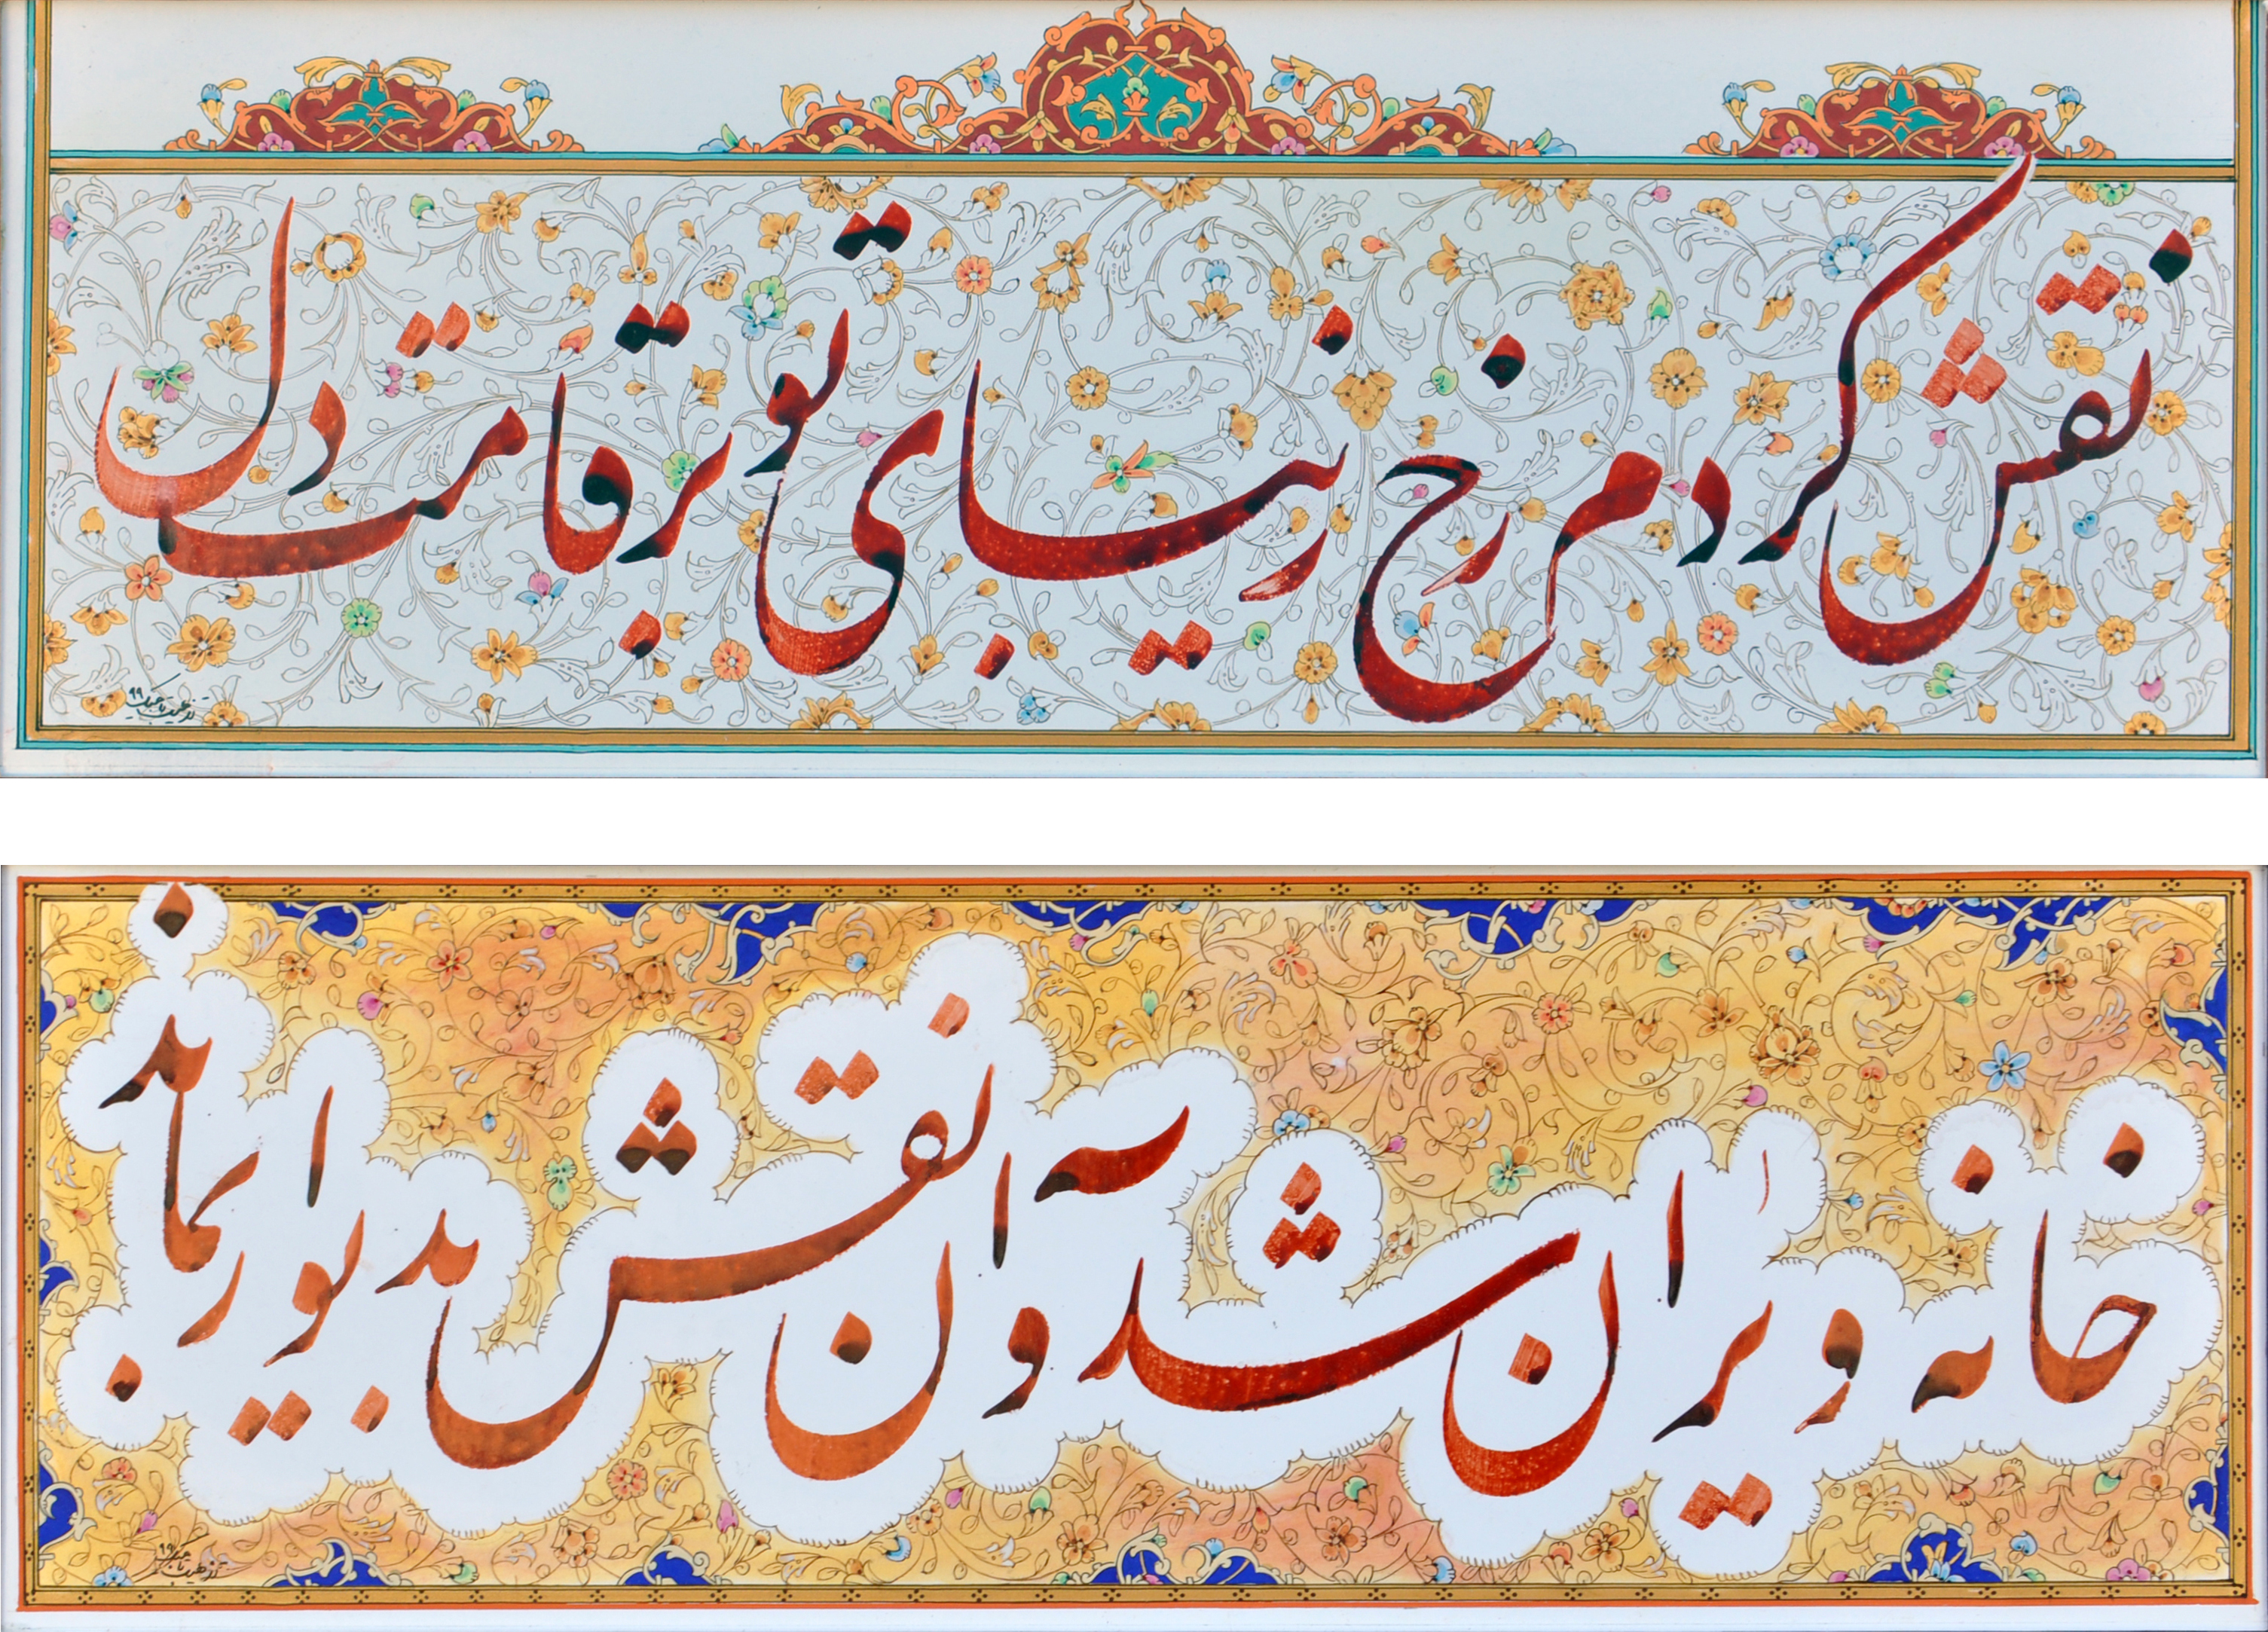 نقش کردم رخ زیبای تو بر قامت دل
خانه ویران شد و آن نقش بدیوار بماند